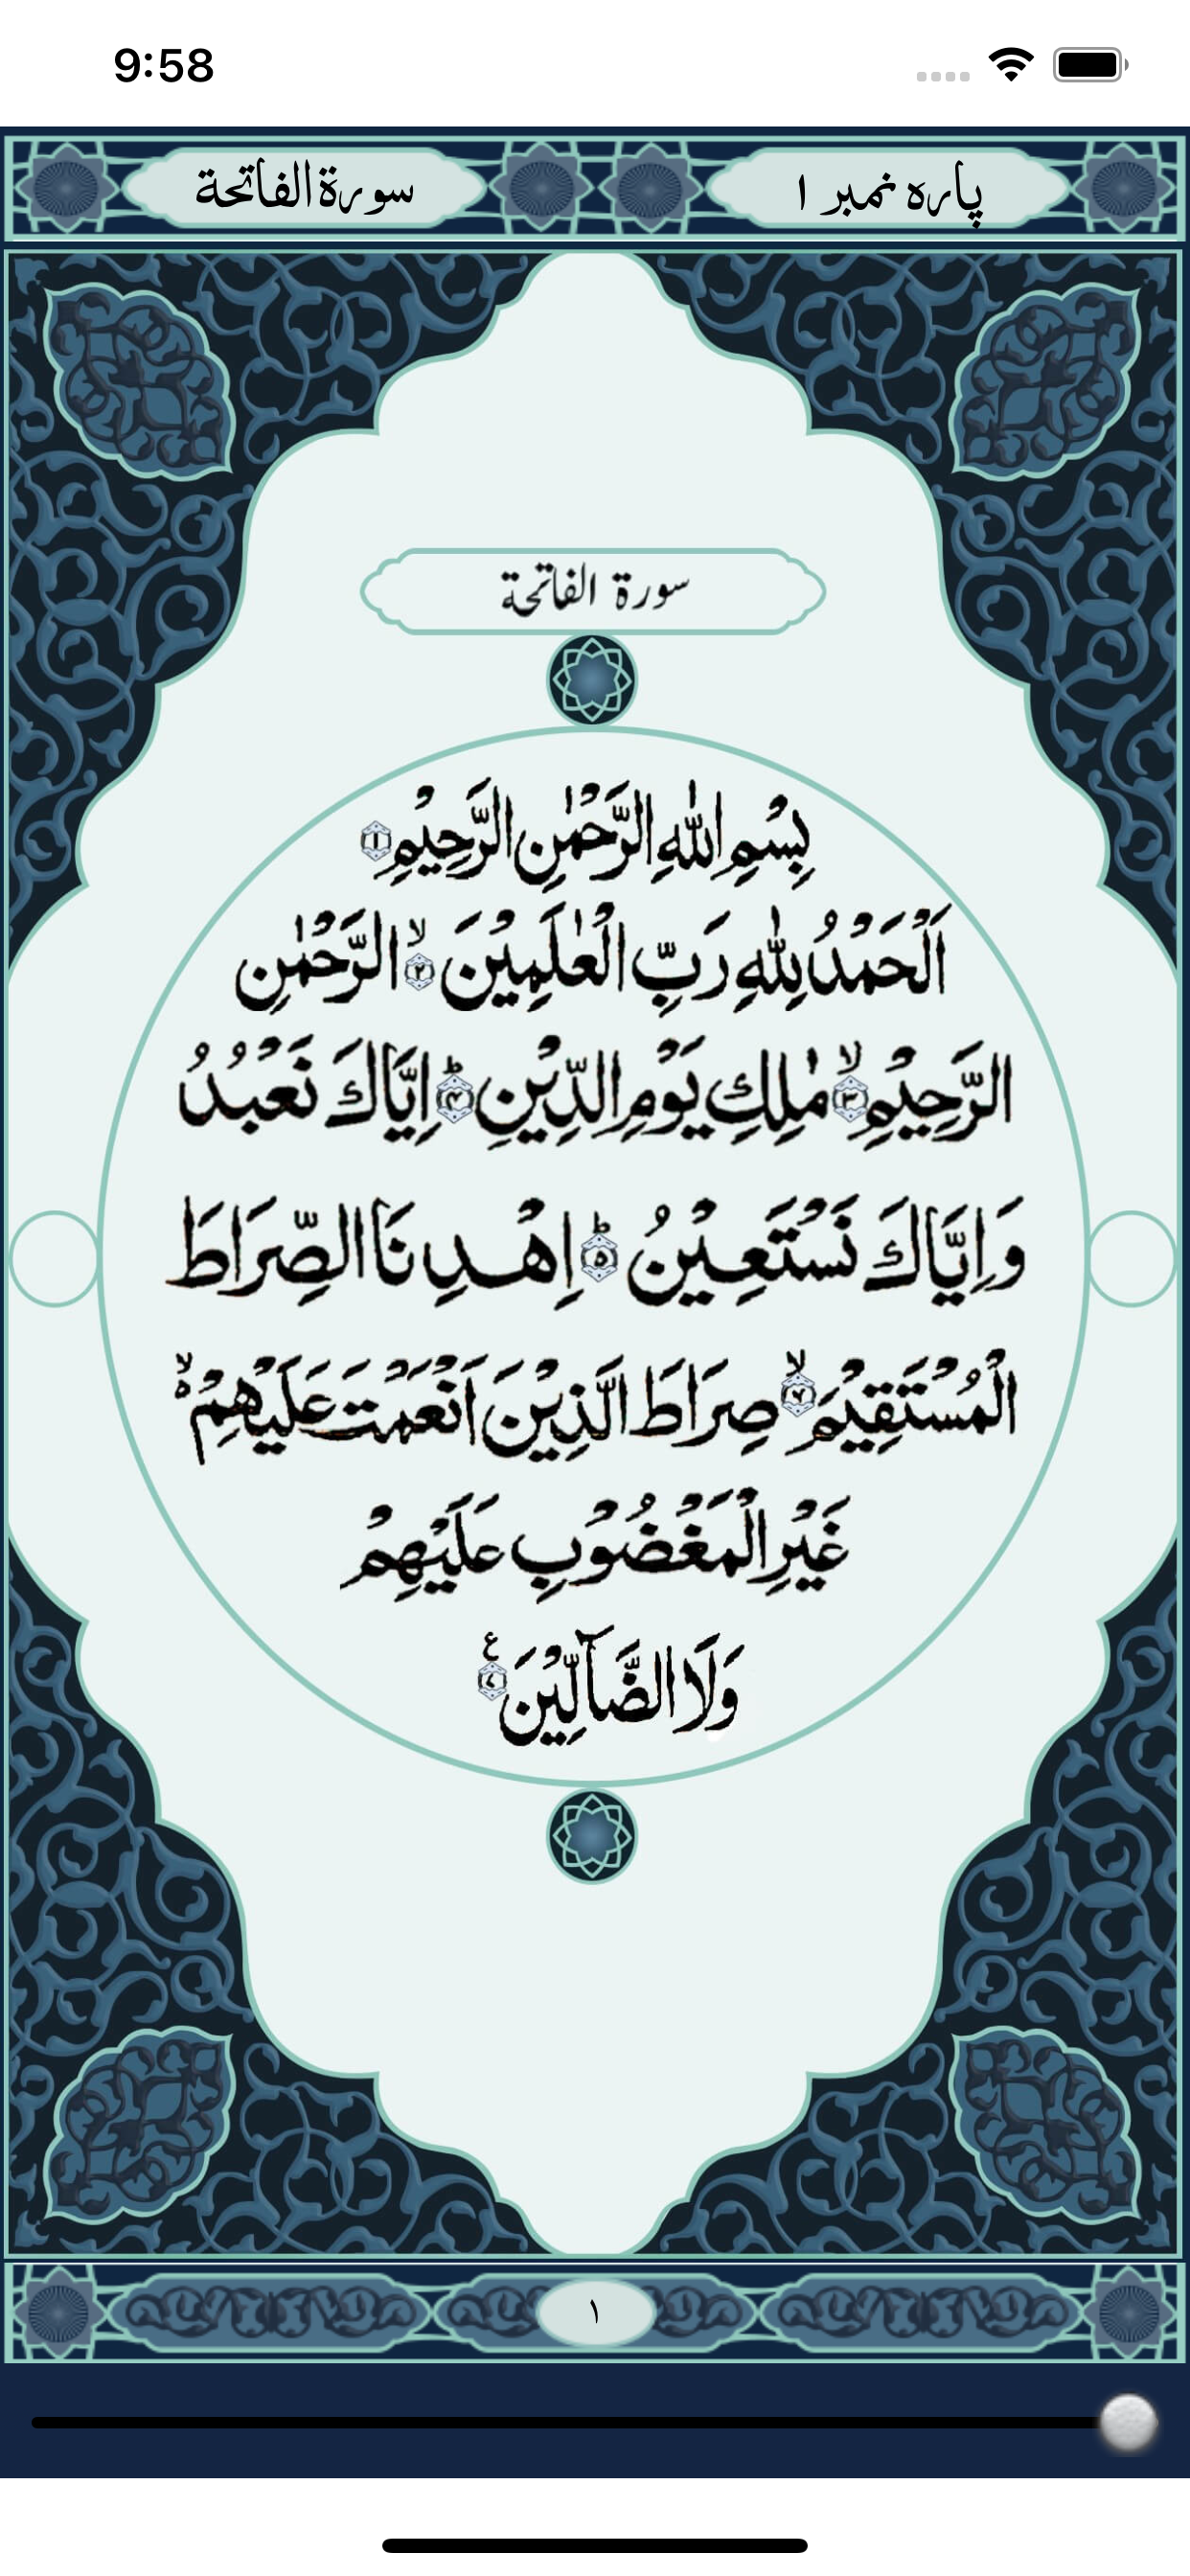 9:58
پارہ نمبر ۱
سورة الفاتحة
سورة الفاتحة
بِسْمِ اللّٰهِ الرَّحْمٰنِ الرَّحِيْمِ ۝۱
اَلْحَمْدُ لِلّٰهِ رَبِّ الْعٰلَمِيْنَ ۙ۝۲ الرَّحْمٰنِ
الرَّحِيْمِ ۙ۝۳ مٰلِكِ يَوْمِ الدِّيْنِ ؕ۝۴ اِيَّاكَ نَعْبُدُ
وَاِيَّاكَ نَسْتَعِيْنُ ؕ۝۵ اِهْدِنَا الصِّرَاطَ
الْمُسْتَقِيْمَ ۙ صِرَاطَ الَّذِيْنَ اَنْعَمْتَ عَلَيْهِمْ ۙ۬ۦ
غَيْرِ الْمَغْضُوْبِ عَلَيْهِمْ
وَلَا الضَّآلِّيْنَ ۝ ع
۱